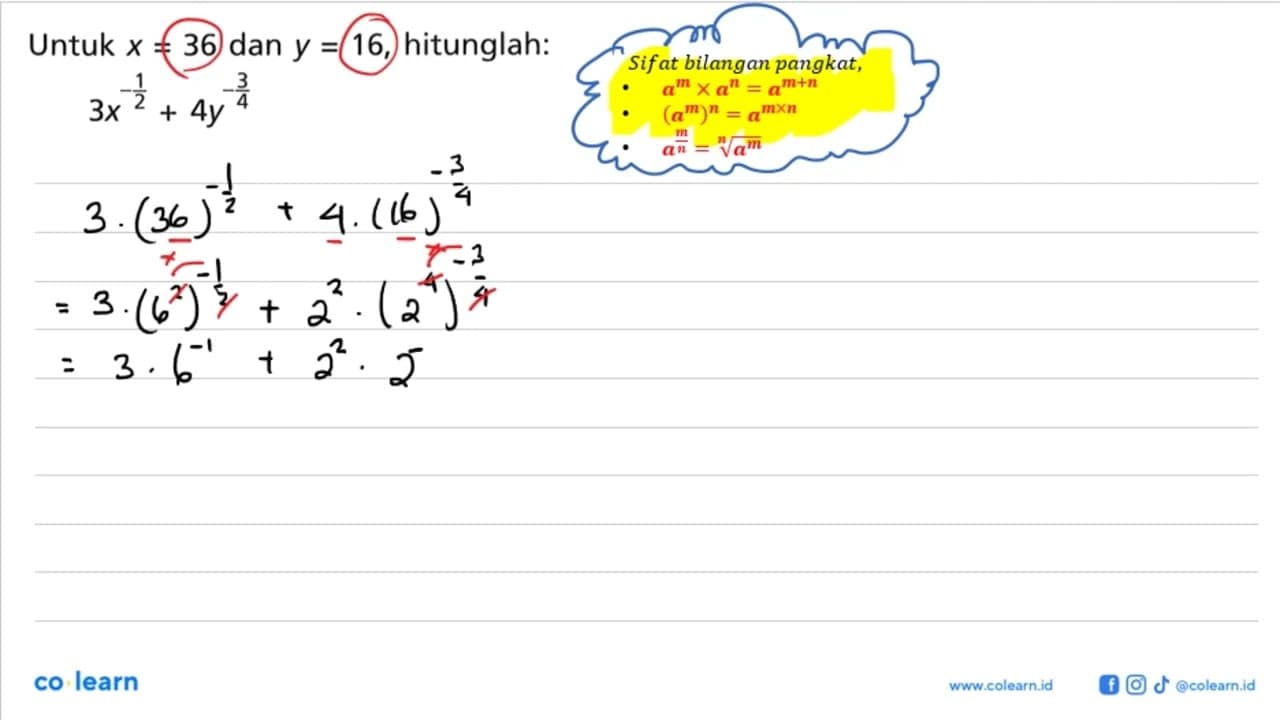 Untuk x = 36 dan y = 16, hitunglah:
3x^{-\frac{1}{2}} + 4y^{-\frac{3}{4}}
Sifat bilangan pangkat,
• a^m × a^n = a^{m+n}
• (a^m)^n = a^{m×n}
• a^{\frac{m}{n}} = \sqrt[n]{a^m}
3 . (36)^{-\frac{1}{2}} + 4 . (16)^{-\frac{3}{4}}
= 3 . (6^2)^{-\frac{1}{2}} + 2^2 . (2^4)^{-\frac{3}{4}}
= 3 . 6^{-1} + 2^2 . 2^-
co learn
www.colearn.id
@colearn.id